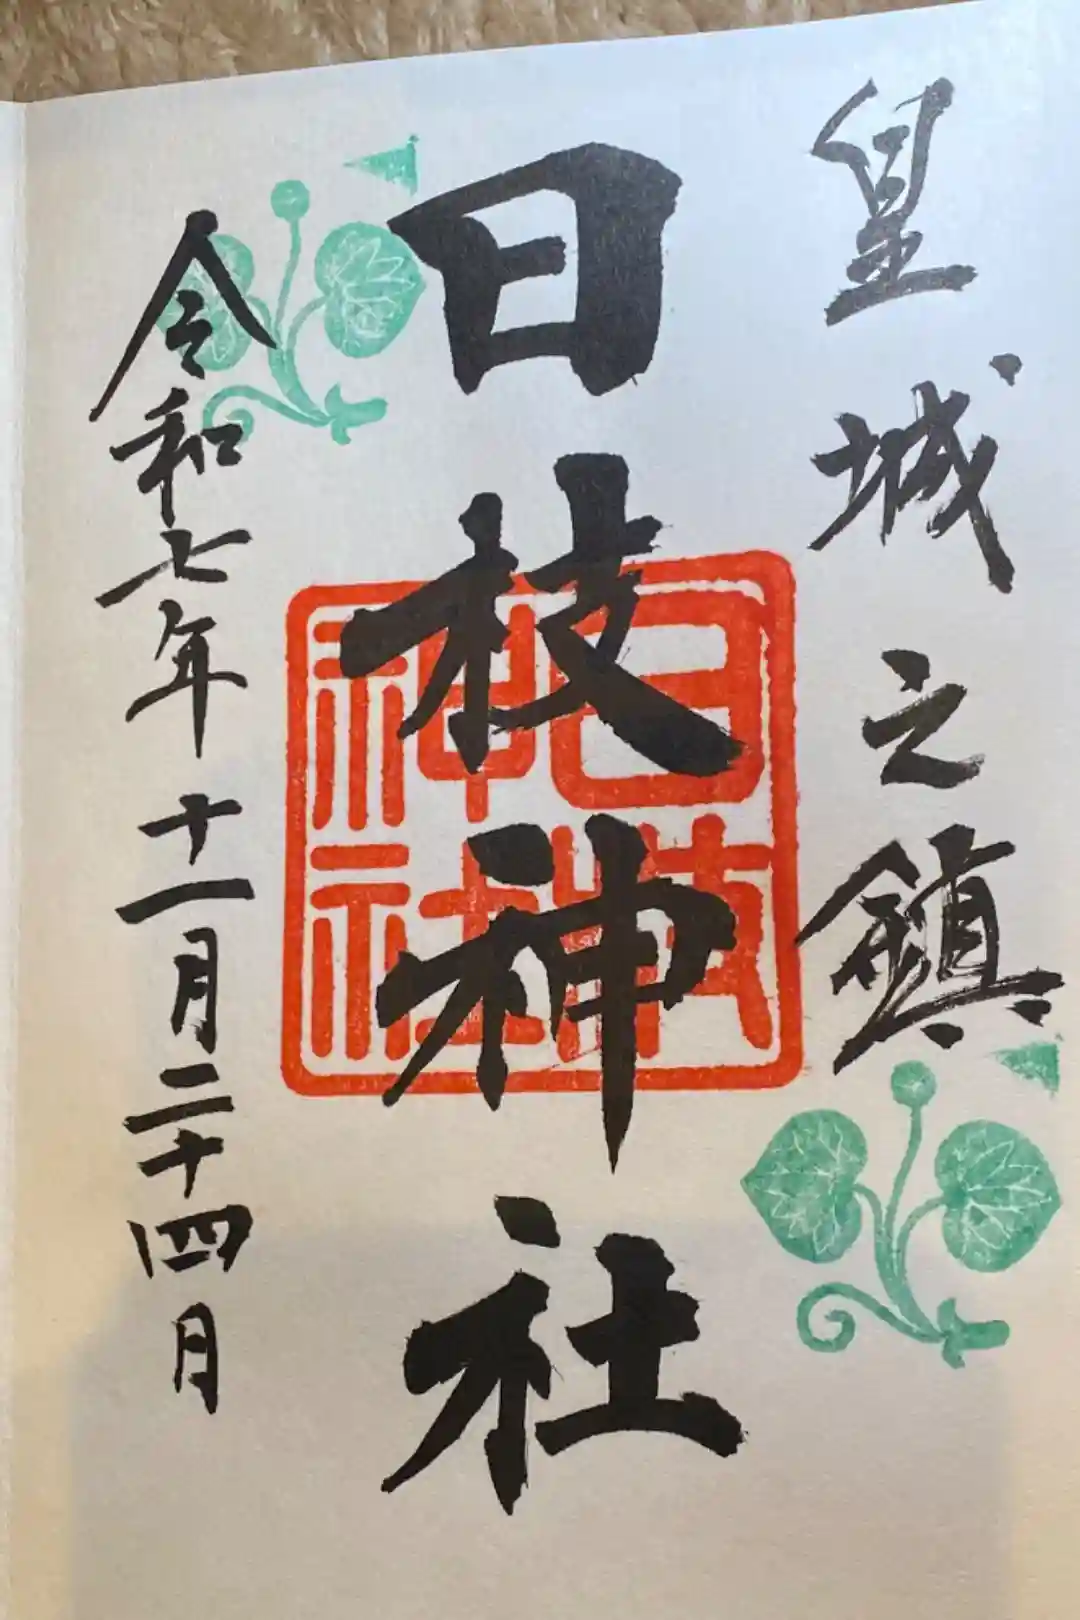 皇城之鎮
日枝神社
日枝
神社
令和七年十一月二十四月